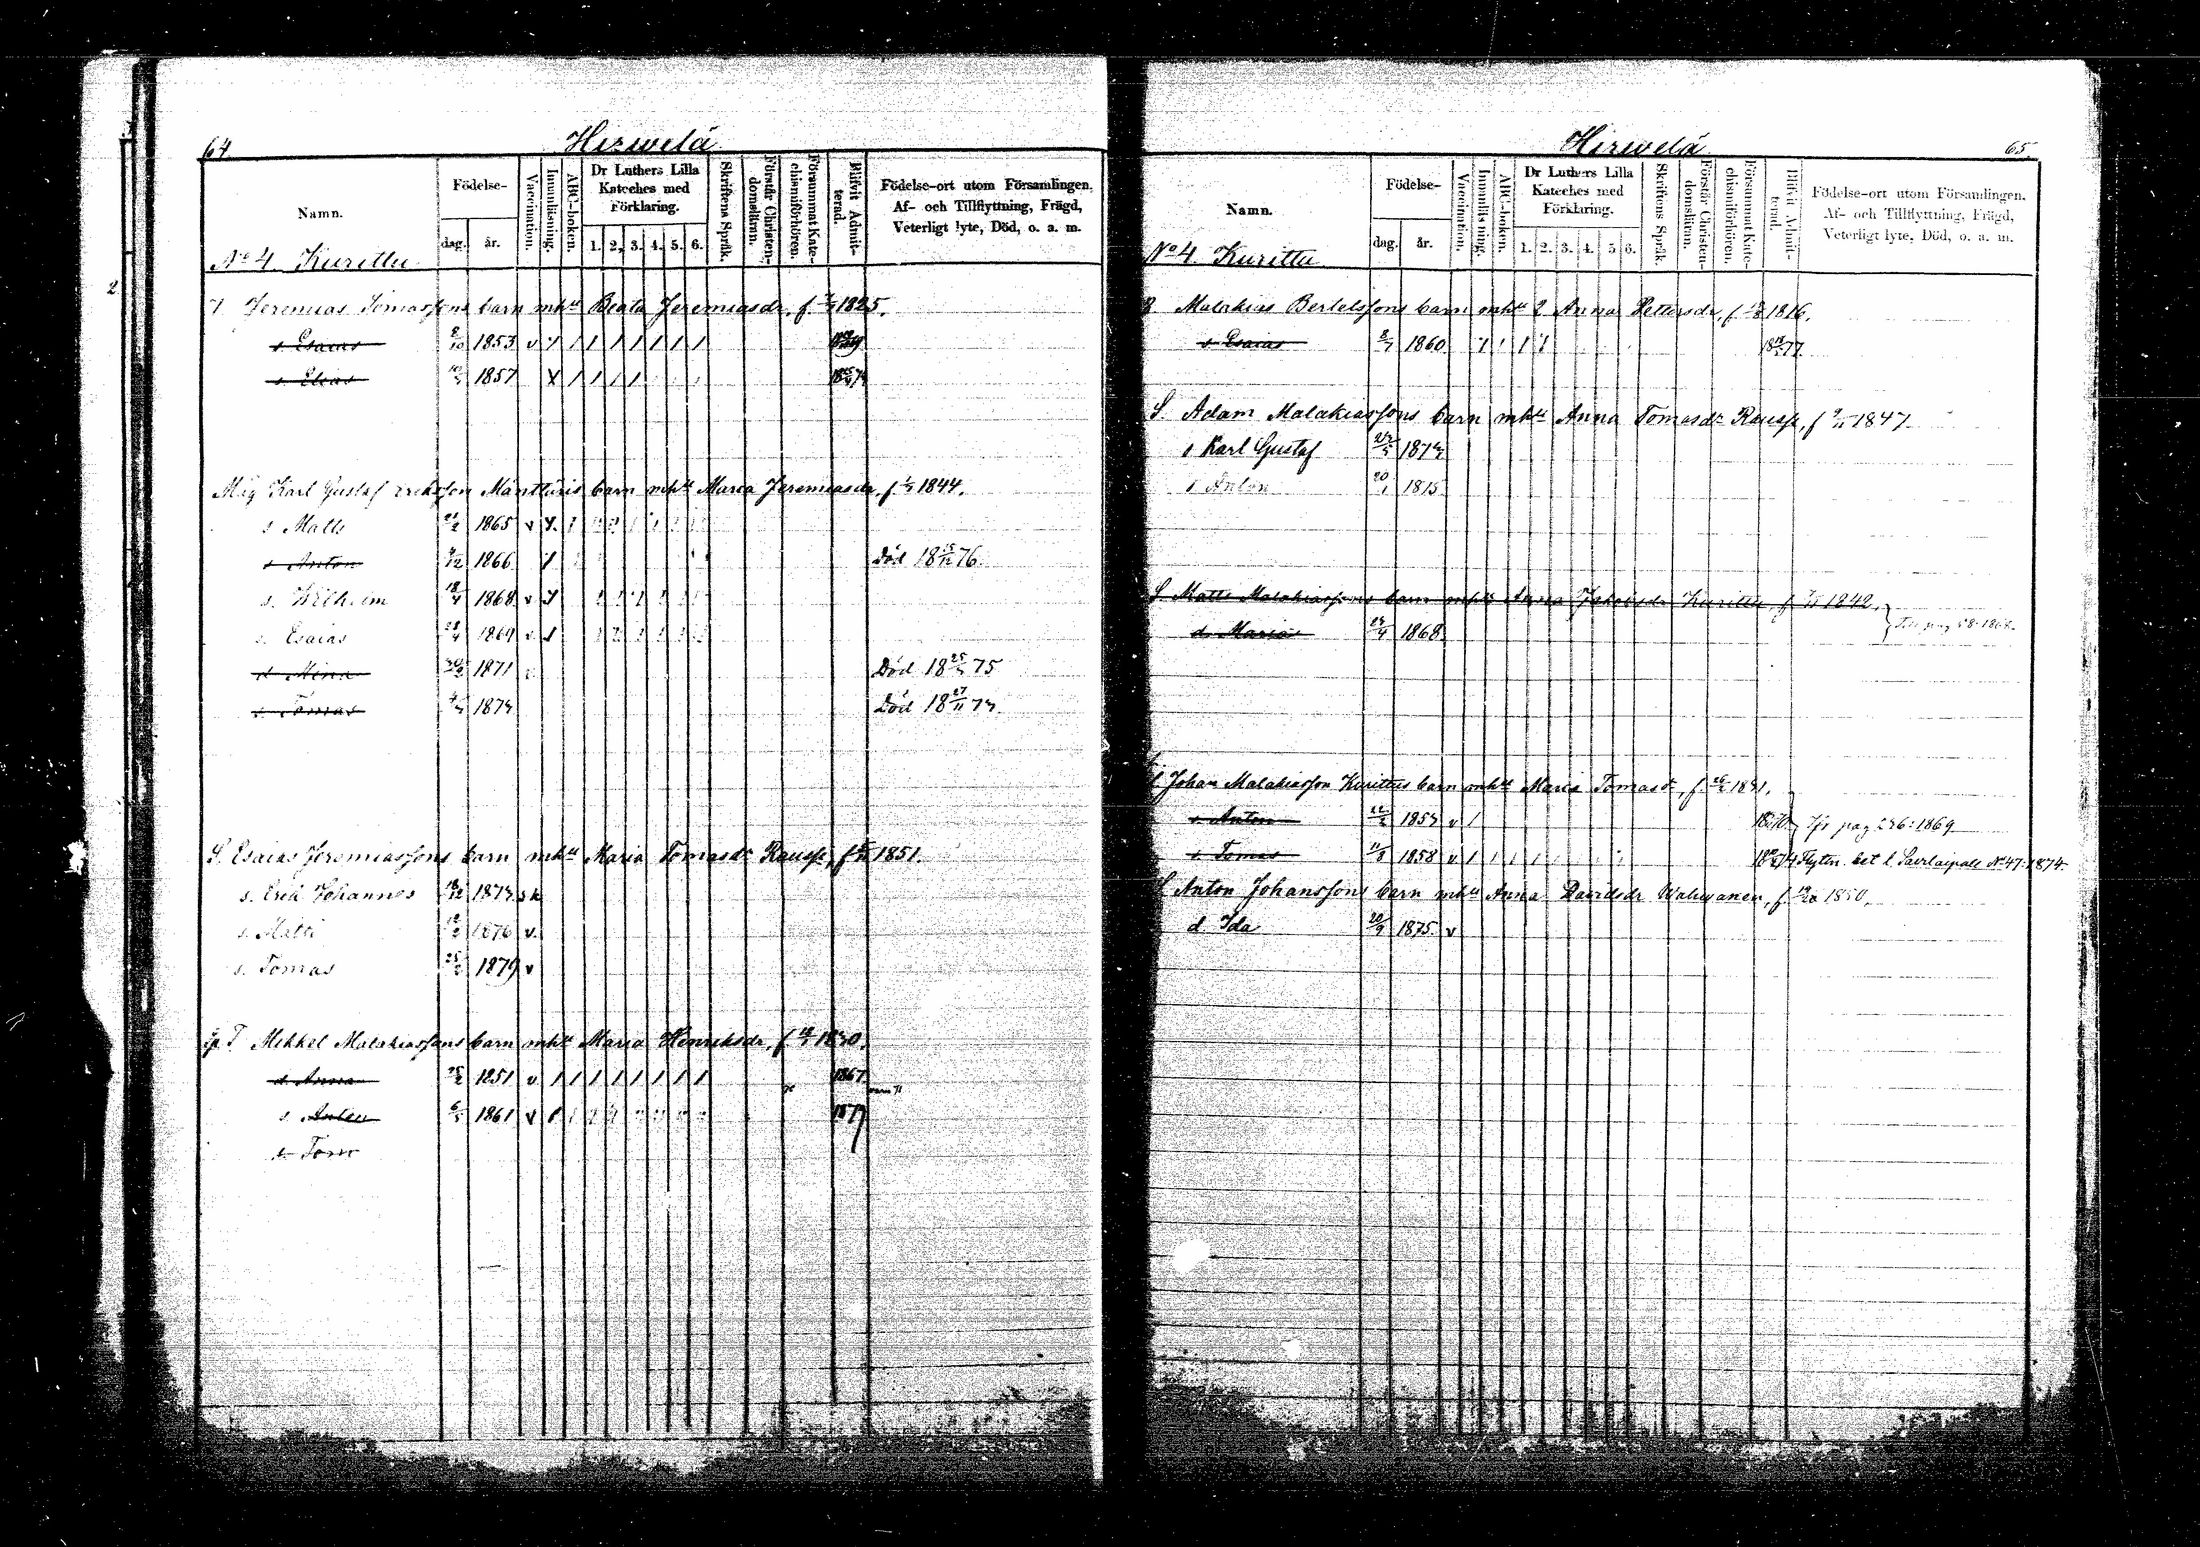 64.
Hirvelä
Namn.
Födelse-
dag. år.
Vaccination.
Innanläsning.
ABC-boken.
Dr Luthers Lilla
Kateches med
Förklaring.
1. 2. 3. 4. 5. 6.
Skriftens Språk.
Förstår Christen-
domsläran.
Försummat Kate-
chismiförhören.
Blifvit Admit-
terad.
Födelse-ort utom Församlingen,
Af- och Tillflyttning, Frägd,
Veterligt lyte, Död, o. a. m.
No 4. Kurittu
Jeremias Tomassons barn mhu Beata Jeremiasdr, f. 1825.
s Esaias 8/10 1853 v
s Elias 1857
Måg Karl Gustaf Eriksson Mänttäris barn mhu Maria Jeremiasdr, f. 1844.
s Matts 21/2 1865 v
s Anton 1866 Död 18 76.
s. Wilhelm 1868 v
s. Esaias 1869 v
d Mina 1871 Död 18 75
s Tomas Död 18 27/11
S. Esaias Jeremiassons barn mhu Maria Tomasdr Rausse, f. 1851.
s. Erik Johannes
s. Matti 1876 v.
s. Tomas 1879 v
Mikkel Malakiassons barn mhu Maria Henriksdr, f.
d Anna 1851 v 1867
s Anton 1861 v
65.
Hirvelä
Namn.
Födelse-
dag. år.
Vaccination.
Innanläsning.
ABC-boken.
Dr Luthers Lilla
Kateches med
Förklaring.
1. 2. 3. 4. 5. 6.
Skriftens Språk.
Förstår Christen-
domsläran.
Försummat Kate-
chismiförhören.
Blifvit Admit-
terad.
Födelse-ort utom Församlingen.
Af- och Tillflyttning, Frägd,
Veterligt lyte, Död, o. a. m.
No 4. Kurittu
Malakias Bertelssons barn mhu 2 Anna Pettersdr, f. 1816.
s Esaias 8/7 1860 77
S. Adam Malakiassons barn mhu Anna Tomasdr Rausse, f 1847
s Karl Gustaf
s Anton 20/1 1875
S. Matts Malakiassons barn mhu Anna Jakobsdr Kurittu, f 1842.
d. Maria 1868
pag 58: 1868.
Johan Malakiasson Kurittus barn mhu Maria Tomasdr, f.
s. Anton v pag 236: 1869
s. Tomas 11/8 1858 v Flyttn. bet t Savitaipale No 47: 1874.
Anton Johanssons barn mhu Anna Davidsdr Walwanen, f. 1850.
d. Ida 20/9 1875. v